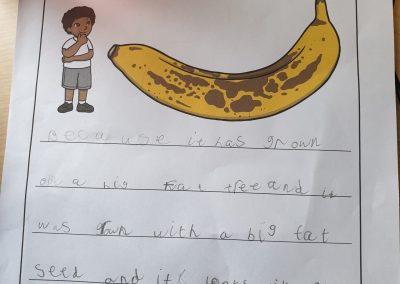 Because it has grown
on a big fat tree and it
was grown with a big fat
seed and it